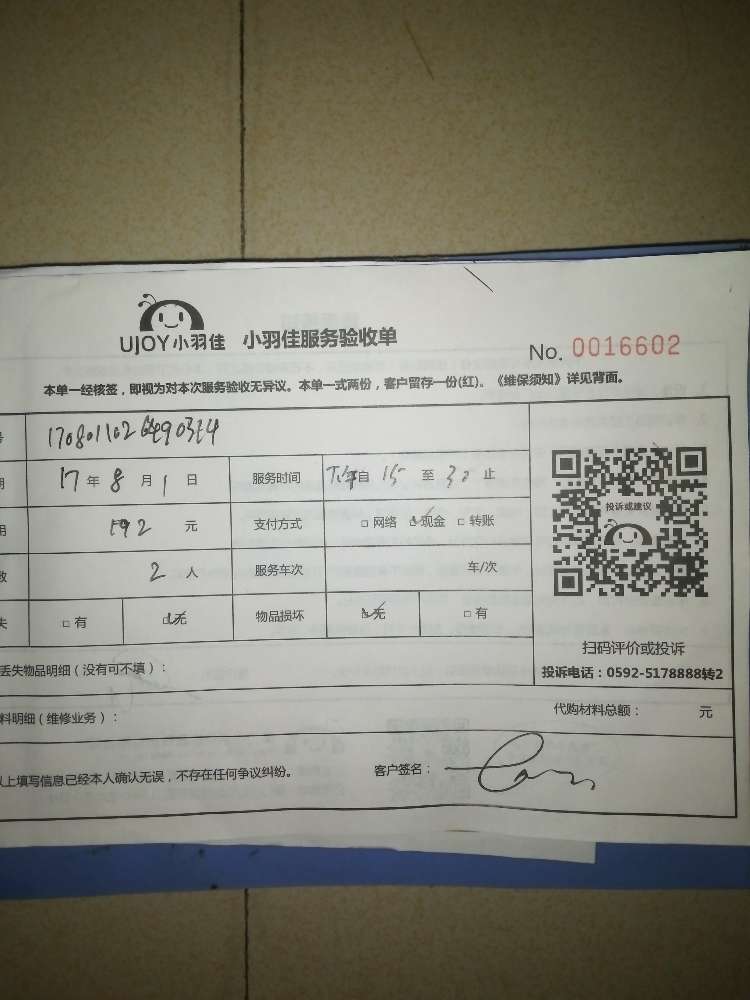 UJOY小羽佳 小羽佳服务验收单
No. 0016602
本单一经核签，即视为对本次服务验收无异议。本单一式两份，客户留存一份(红)。《维保须知》详见背面。
号
期 17年8月1日 服务时间 下午自15至30止
用 192元 支付方式 □网络 ☑现金 □转账
数 2人 服务车次 车/次
失 □有 ☑无 物品损坏 ☑无 □有
投诉或建议
扫码评价或投诉
投诉电话：0592-5178888转2
丢失物品明细（没有可不填）：
料明细（维修业务）： 代购材料总额： 元
以上填写信息已经本人确认无误，不存在任何争议纠纷。 客户签名：